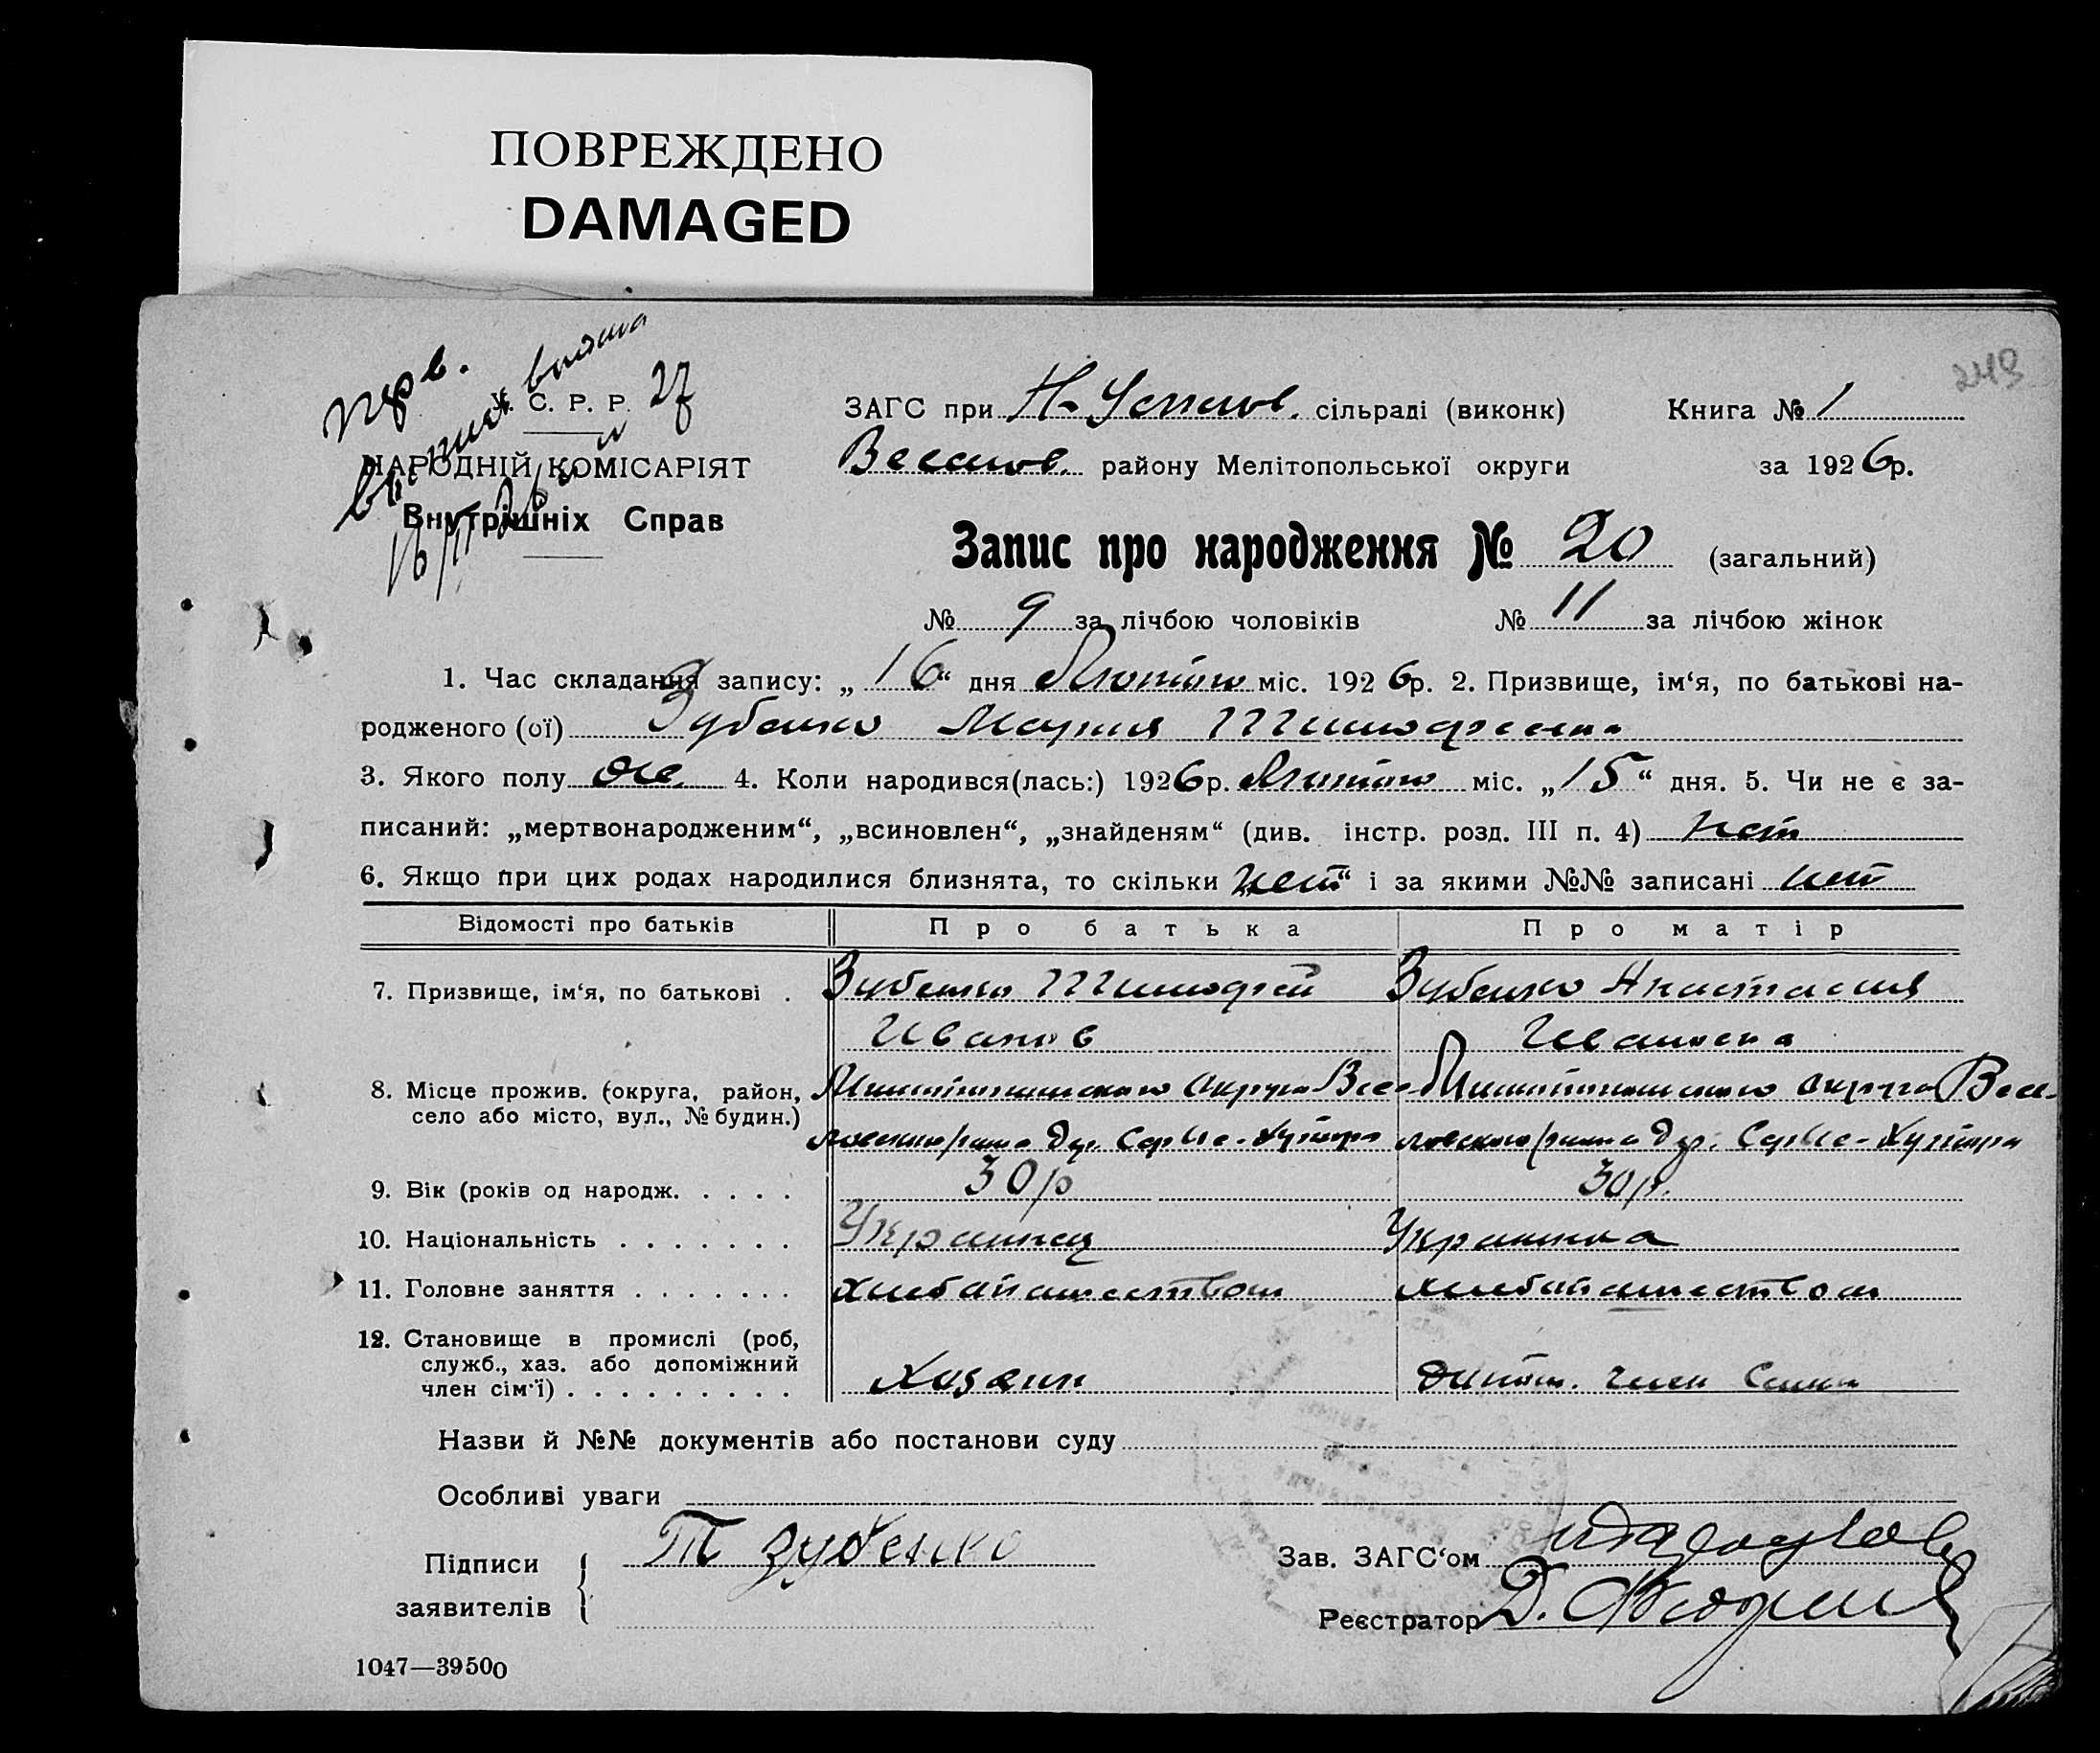 ПОВРЕЖДЕНО
DAMAGED
249
У. С. Р. Р. 27
НАРОДНІЙ КОМІСАРІЯТ
Внутрішніх Справ
ЗАГС при Н-Успенов. сільраді (виконк) Книга № 1
Веселов. району Мелітопольської округи за 1926р.
Запис про народження № 20 (загальний)
№ 9 за лічбою чоловіків № 11 за лічбою жінок
1. Час складання запису: „16“ дня Лютого міс. 1926р. 2. Призвище, ім‘я, по батькові на-
родженого (ої) Зубенко Мария Тимофеевна
3. Якого полу же. 4. Коли народився(лась:) 1926р. Лютого міс. „15“ дня. 5. Чи не є за-
писаний: „мертвонародженим“, „всиновлен“, „знайденям“ (див. інстр. розд. III п. 4) нет
6. Якщо при цих родах народилися близнята, то скільки „нет“ і за якими №№ записані нет
Відомості про батьків Про батька Про матір
7. Призвище, ім‘я, по батькові . Зубенко Тимофей Зубенко Анастасия
Иванов Ивановна
8. Місце прожив. (округа, район, округа Весе- округа Весе-
село або місто, вул., № будин.)
9. Вік (років од народж. . . . . 30 р 30 р.
10. Національність . . . . . . . Украинец Украинка
11. Головне заняття . . . . . . . хлебопашеством хлебопашеством
12. Становище в промислі (роб,
служб., хаз. або допоміжний
член сім‘ї) . . . . . . . . . Хозяин допом. член Семи
Назви й №№ документів або постанови суду
Особливі уваги
Підписи Т Зубенко Зав. ЗАГС‘ом
заявителів Реєстратор Д.
1047—39500